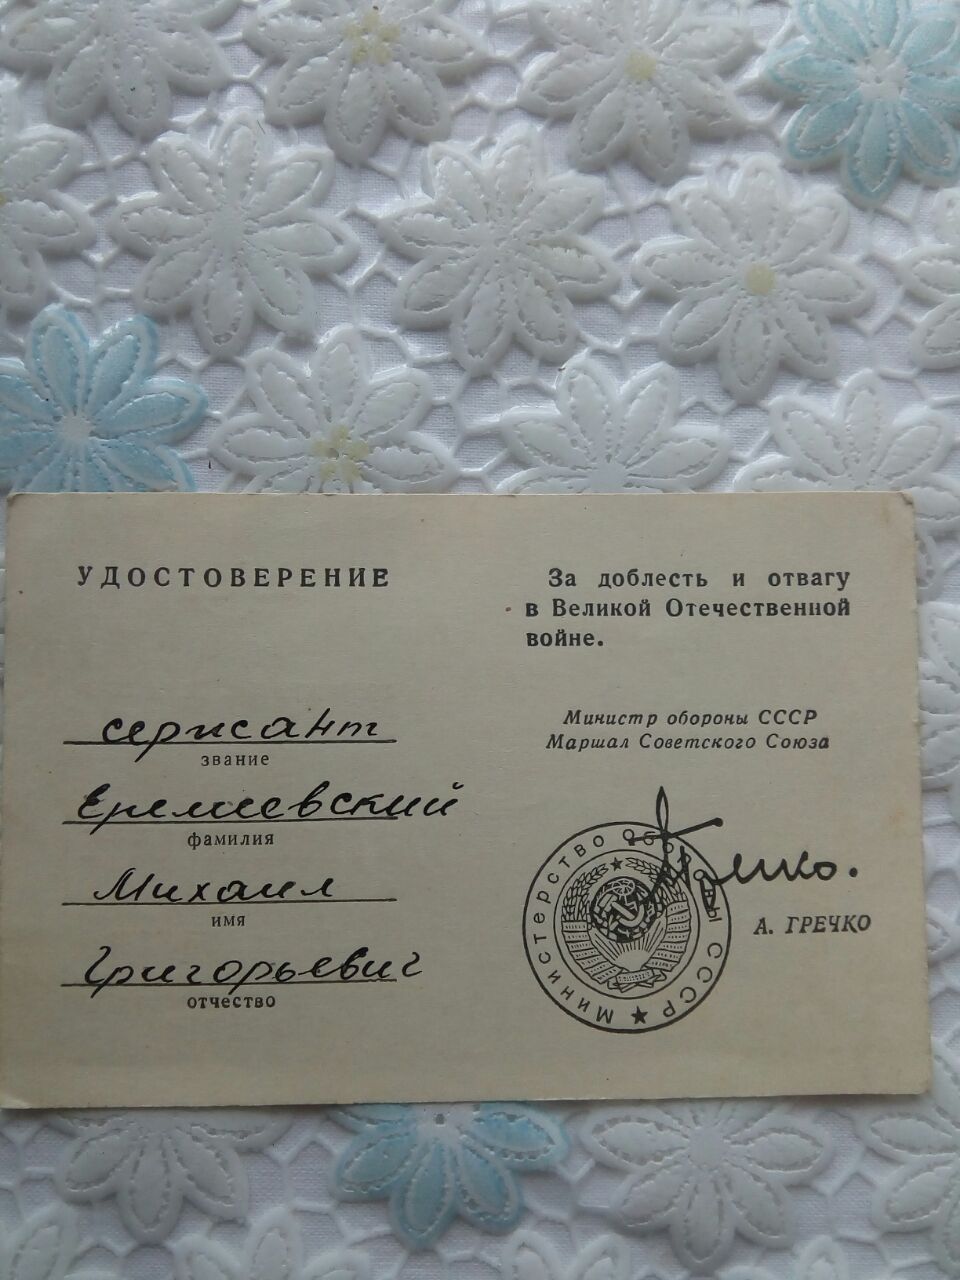 УДОСТОВЕРЕНИЕ
сержант
звание
Еремиевский
фамилия
Михаил
имя
Григорьевич
отчество
За доблесть и отвагу
в Великой Отечественной
войне.
Министр обороны СССР
Маршал Советского Союза
Гречко.
А. ГРЕЧКО
Министерство Обороны СССР